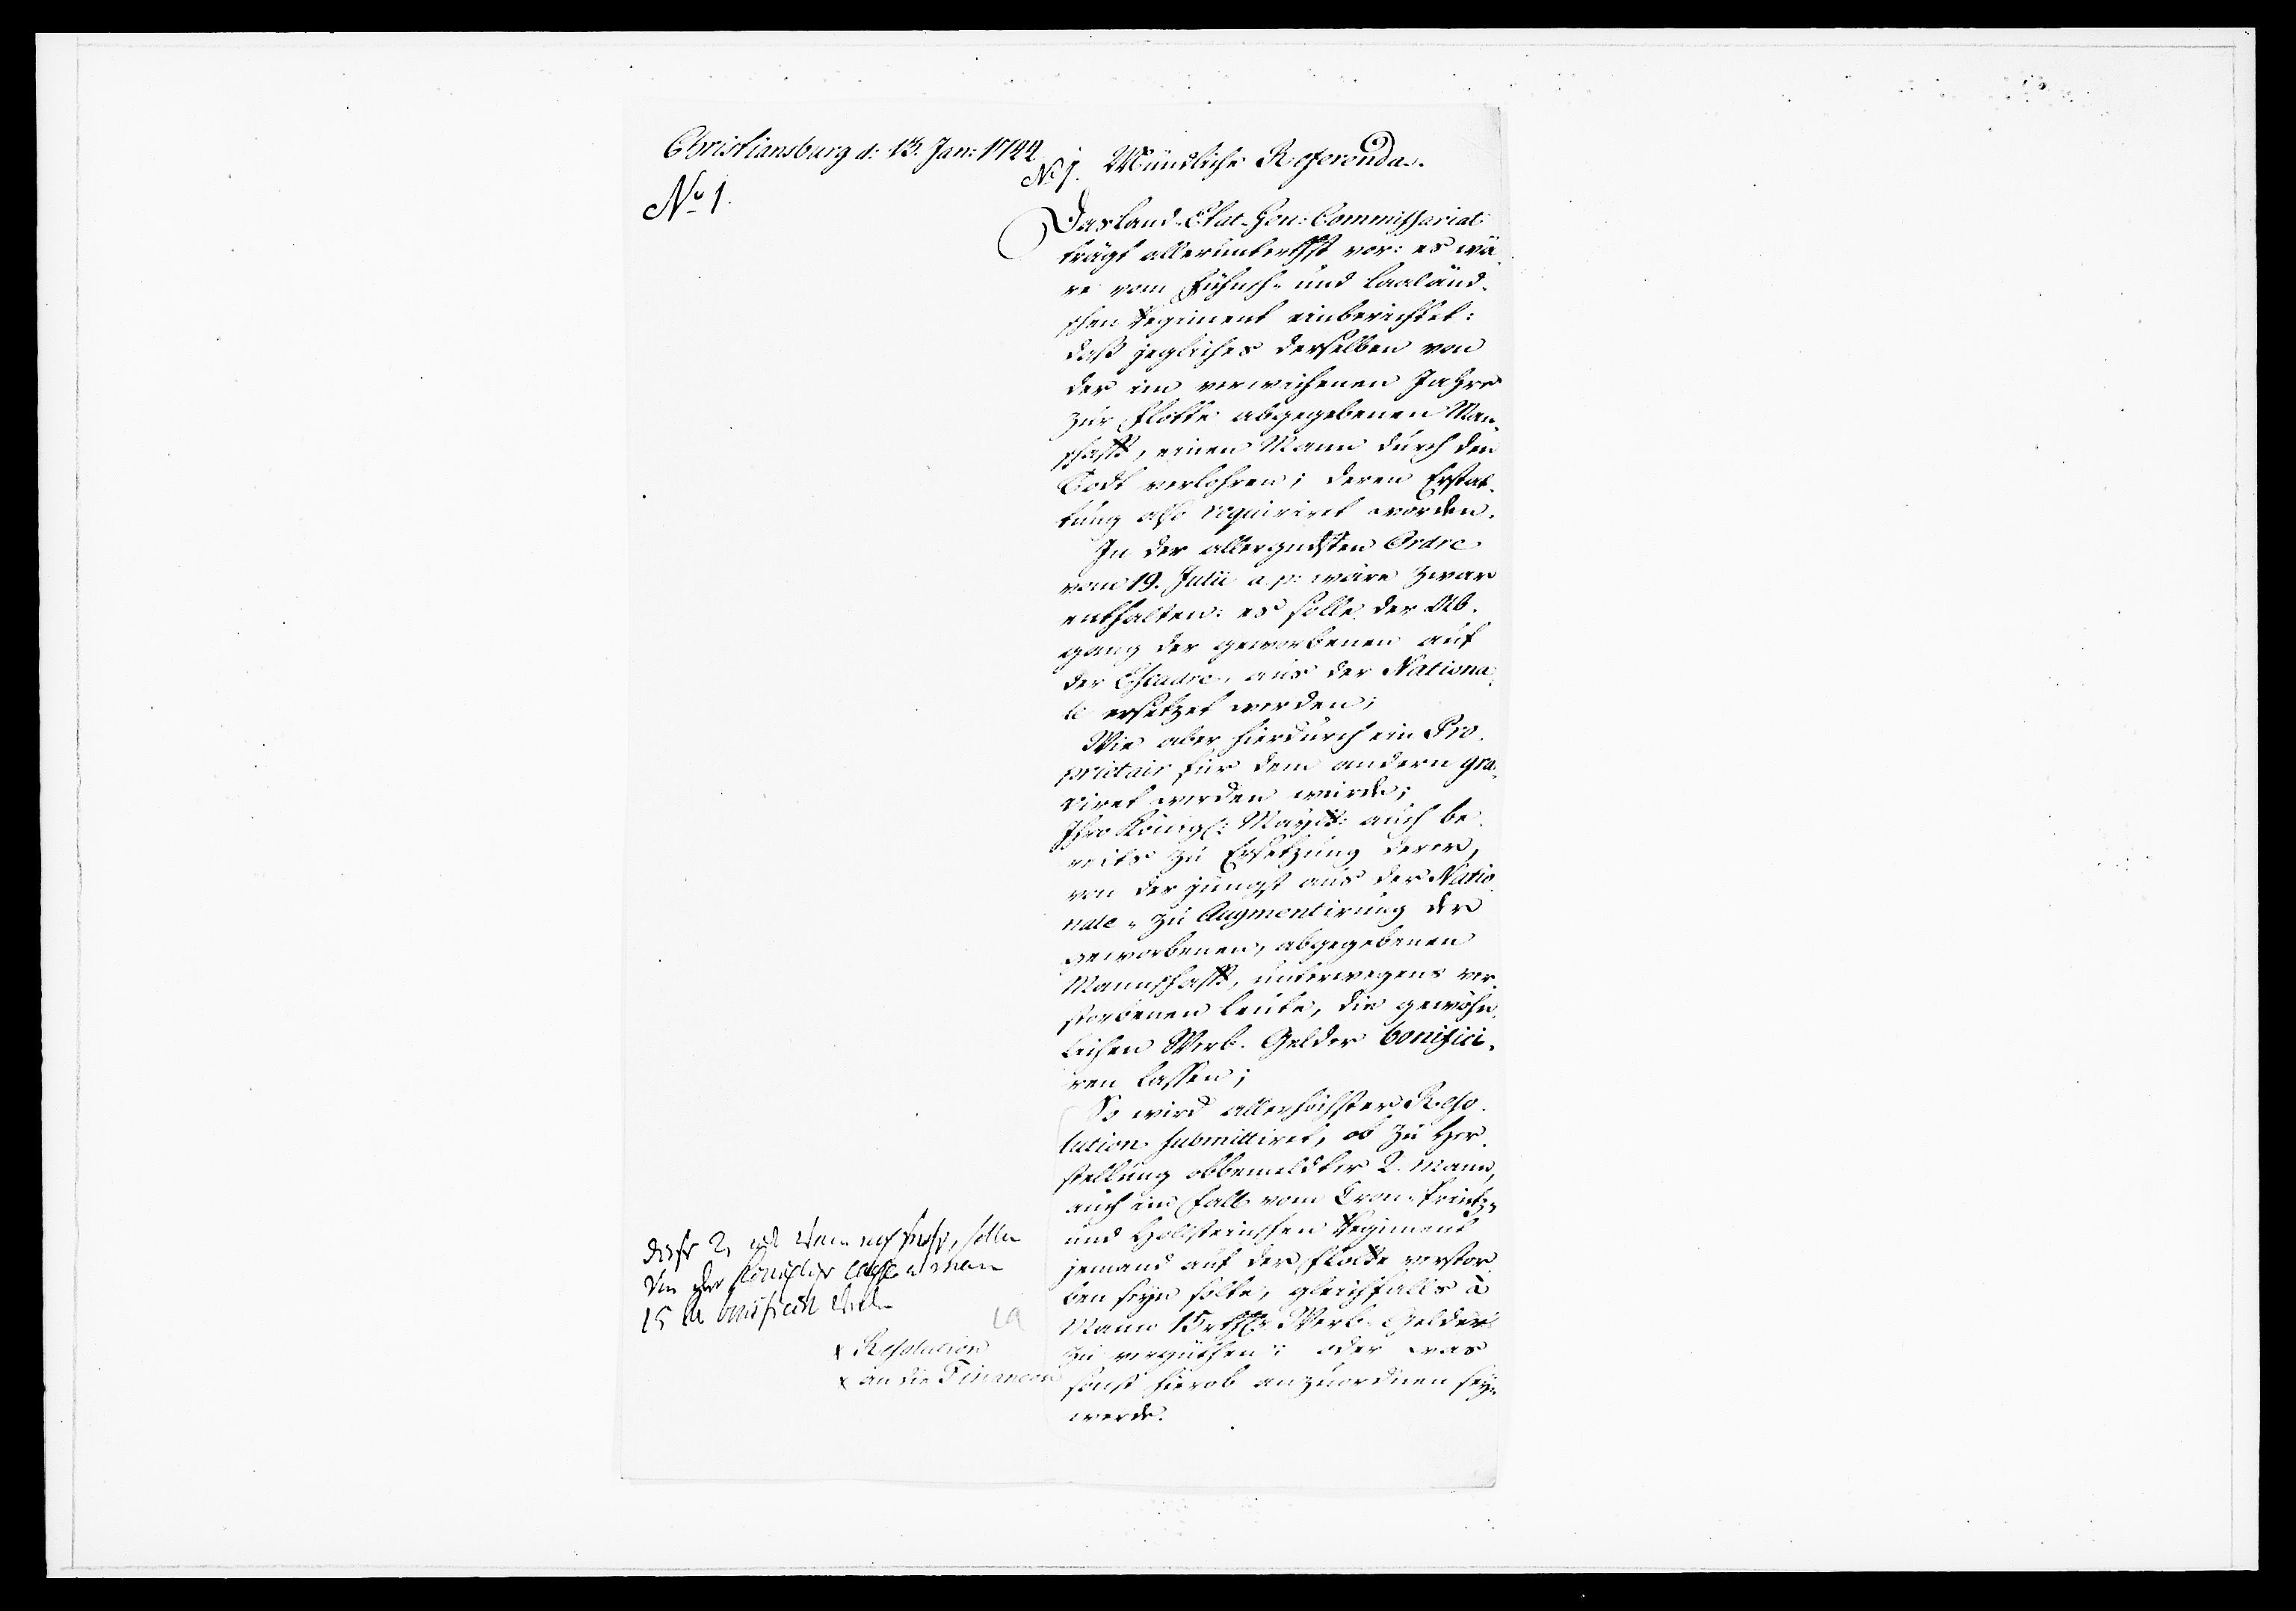 Christiansburg d: 13. Jan: 1744
No 1.
No 1. Mündliche Referenda.
Das Land-Etat-Gen: Commissariat
trägt allerunterthst vor: es wä-
re vom Fühnsch- und Laaländ-
schen Regiment einberichtet:
daß jegliches derselben von
der im verwichenen Jahre
zur Flotte abgegebenen Man-
schafft, einen Mann durch den
Todt verlohren; deren Erstat-
tung also requiriret worden.
In der allergndsten Ordre
vom 19. Julii a. p: wäre zwar
enthalten: es solle der Ab-
gang der geworbenen auf
der Escadre, aus der Nationa-
le ersetzet werden;
Wie aber hierdurch ein Pro-
prietair für dem andern gra-
viret werden würde;
Ihro Königl: Maytt: auch be-
reits zu Ersetzung derer,
von der jüngst aus der Natio-
nale - zu Augmentirung der
geworbenen, abgegebenen
Mannschafft, unterwegens ver-
storbenen Leute, die gewöhn-
lichen Werb-Gelder bonifici-
ren lassen;
So wird allerhöchster Reso-
lution submittiret, ob zu Her-
stellung obbemeldter 2. Mann,
auch im Fall vom Cron-Printz-
und Hollsteinschen Regiment
jemand auf der Flotte verstor-
ben seyn solte, gleichfalls à
Mann 15 rthlr Werb-Gelder
zu vergüthen: oder was
sonst hierob anzuordnen seyn
werde.
diese 2, soller
von der Königl Casse a man
15 bonificirt
19
x Resolution
x an die Financen